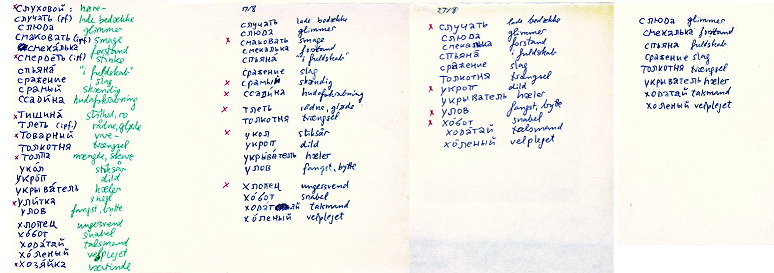 × слуховой: høre-
случать (pf) lade bedække
слюда glimmer
× смаковать (ipf) smage
смекалка forstand
× смердеть (ipf) stinke
спьяна "i fuldskab"
сражение slag
срамый skændig
ссадина hudafskrabning
× тишина stilhed, ro
тлеть (ipf.) rådne, gløde
× товарный vare-
толкотня trængsel
× толпа mængde, skare
укол stiksår
укроп dild
укрыватель hæler
× улитка snegl
улов fangst, bytte
хлопец ungersvend
хобот snabel
ходатай talsmand
холеный velplejet
× хозяйка værtinde
17/8
случать lade bedække
слюда glimmer
× смаковать smage
смекалка forstand
спьяна "i fuldskab"
сражение slag
× срамый skændig
× ссадина hudafskrabning
× тлеть rådne, gløde
толкотня trængsel
× укол stiksår
укроп dild
укрыватель hæler
улов fangst, bytte
× хлопец ungersvend
хобот snabel
ходатай talsmand
холеный velplejet
27/8
× случать lade bedække
слюда glimmer
смекалка forstand
спьяна "i fuldskab"
сражение slag
толкотня trængsel
× укроп dild
укрыватель hæler
× улов fangst, bytte
× хобот snabel
ходатай talsmand
холеный velplejet
слюда glimmer
смекалка forstand
спьяна fuldskab
сражение slag
толкотня trængsel
укрыватель hæler
ходатай talsmand
холеный velplejet